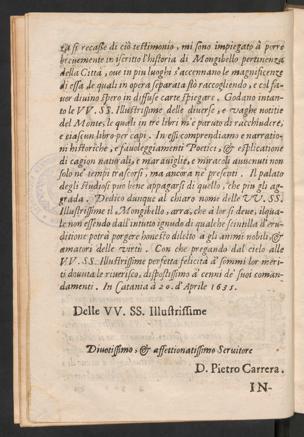 ta si recasse di ciò testimonio, mi sono impiegato à porre
breuemente in iscritto l'historia di Mongibello pertinenza
della Città, oue in piu luoghi s'accennano le magnificenze
di essa, le quali in opera separata stò raccogliendo, e col fa-
uor diuino spero in diffuse carte spiegare. Godano intan-
to le VV. SS. Illustrissime delle diuerse, e vaghe notitie
del Monte, le quali in tre libri m'è paruto di racchiudere,
e ciascun libro per capi. In essi comprendiamo e narratio-
ni historiche, e fauoleggiamenti Poetici, & esplicatione
di cagion naturali, e marauiglie, e miracoli auuenuti non
solo ne' tempi trascorsi, ma ancora ne' presenti. Il palato
degli studiosi può bene appagarsi di quello, che più gli ag-
grada. Dedico dunque al chiaro nome delle VV. SS.
Illustrissime il, Mongibello, arra, che à lor si deue, ilqua-
le non essendo dall'intutto ignudo di qualche scintilla d'eru-
ditione potrà porgere honesto diletto à gli animi nobili, &
amatori delle virtù. Con che pregando dal cielo alle
VV. SS. Illustrissime perfetta felicità à sommi lor meri-
ti douuta le riuerisco, dispostissimo à cenni de' suoi coman-
damenti. In Catania à 20. d'Aprile 1635.
Delle VV. SS. Illustrissime
Diuotissimo, & affettionatissimo Seruitore
D. Pietro Carrera.
IN-